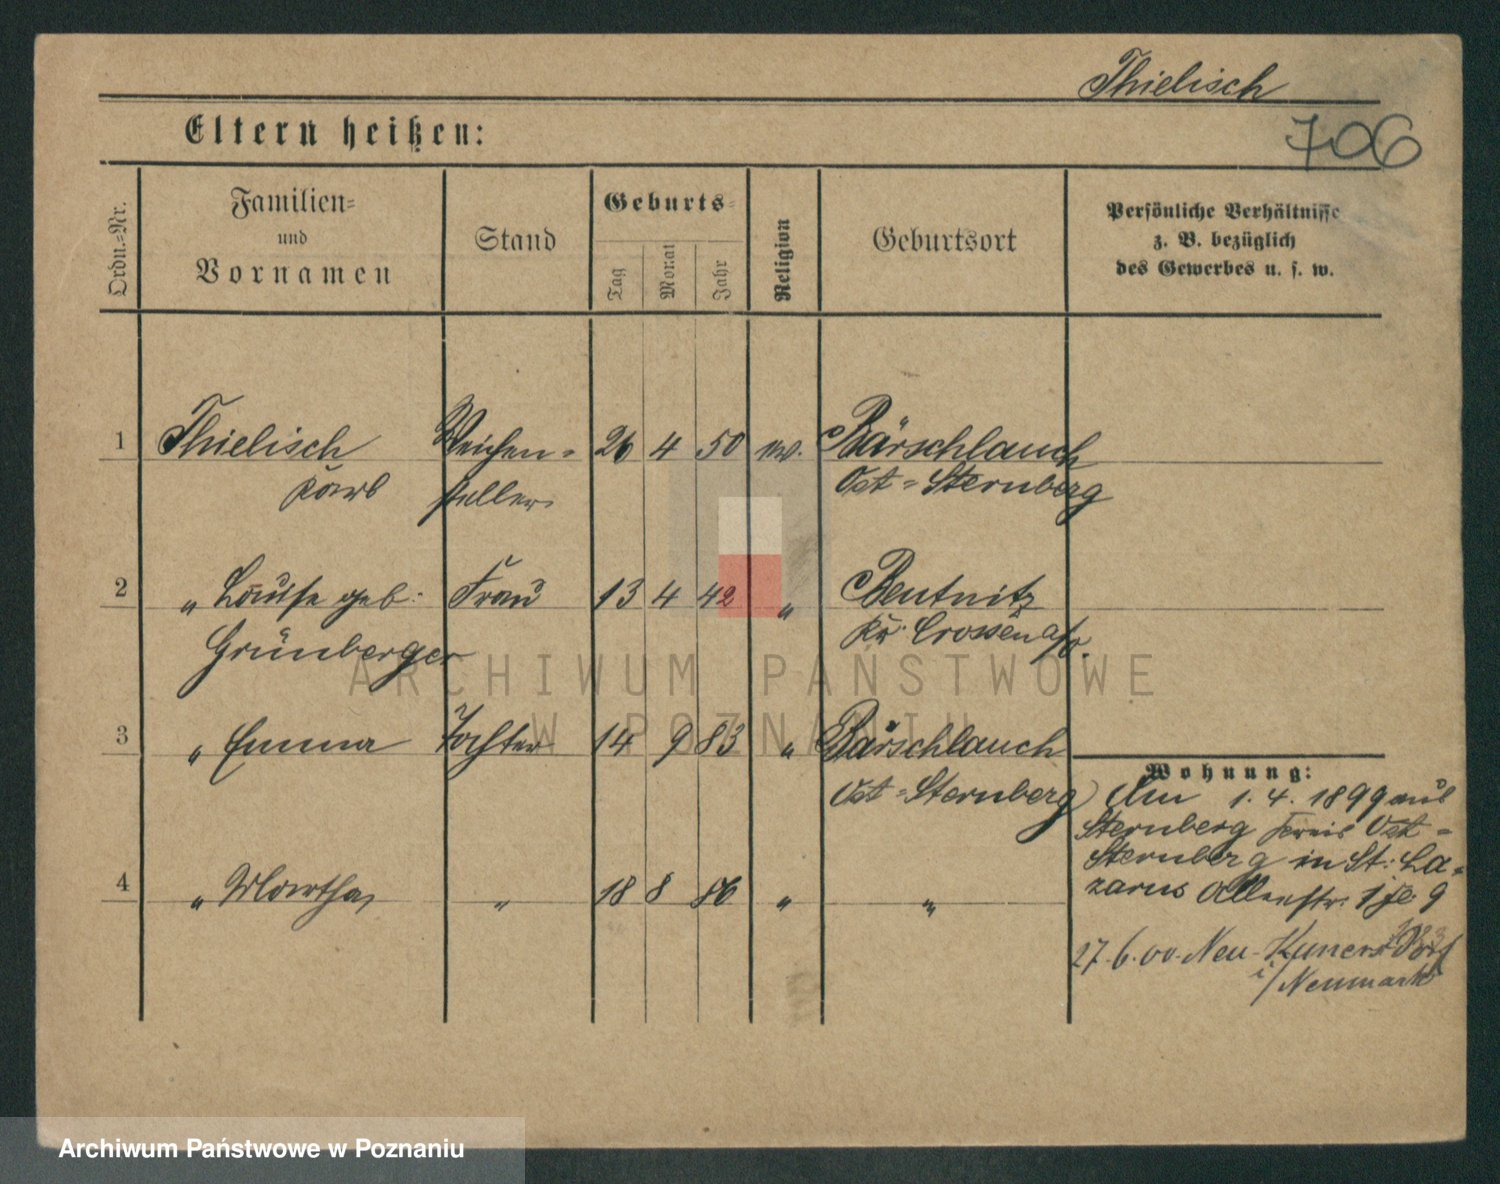 Thielisch
706
Eltern heißen:
Ordn.=Nr.
Familien=
und
Vornamen
Stand
Geburts=
Tag
Monat
Jahr
Religion
Geburtsort
Persönliche Verhältnisse
z. B. bezüglich
des Gewerbes u. s. w.
1 Thielisch Weichen= 26 4 50 ev. Bärschlauch
Karl steller Ost=Sternberg
2 „ Louise geb. Frau 13 4 42 „ Beutnitz
Grünberger Kr. Crossen a/o.
3 „ Emma Tochter 14 9 83 „ Bärschlauch
Ost=Sternberg
4 „ Martha „ 18 8 86 „ „
Wohnung:
Am 1. 4. 1899 aus
Sternberg Kreis Ost=
Sternberg in St: La=
zarus Allerstr. 9
27.6.00. Neu-Kunersdorf
i/Neumark
ARCHIWUM PAŃSTWOWE
W POZNANIU
Archiwum Państwowe w Poznaniu